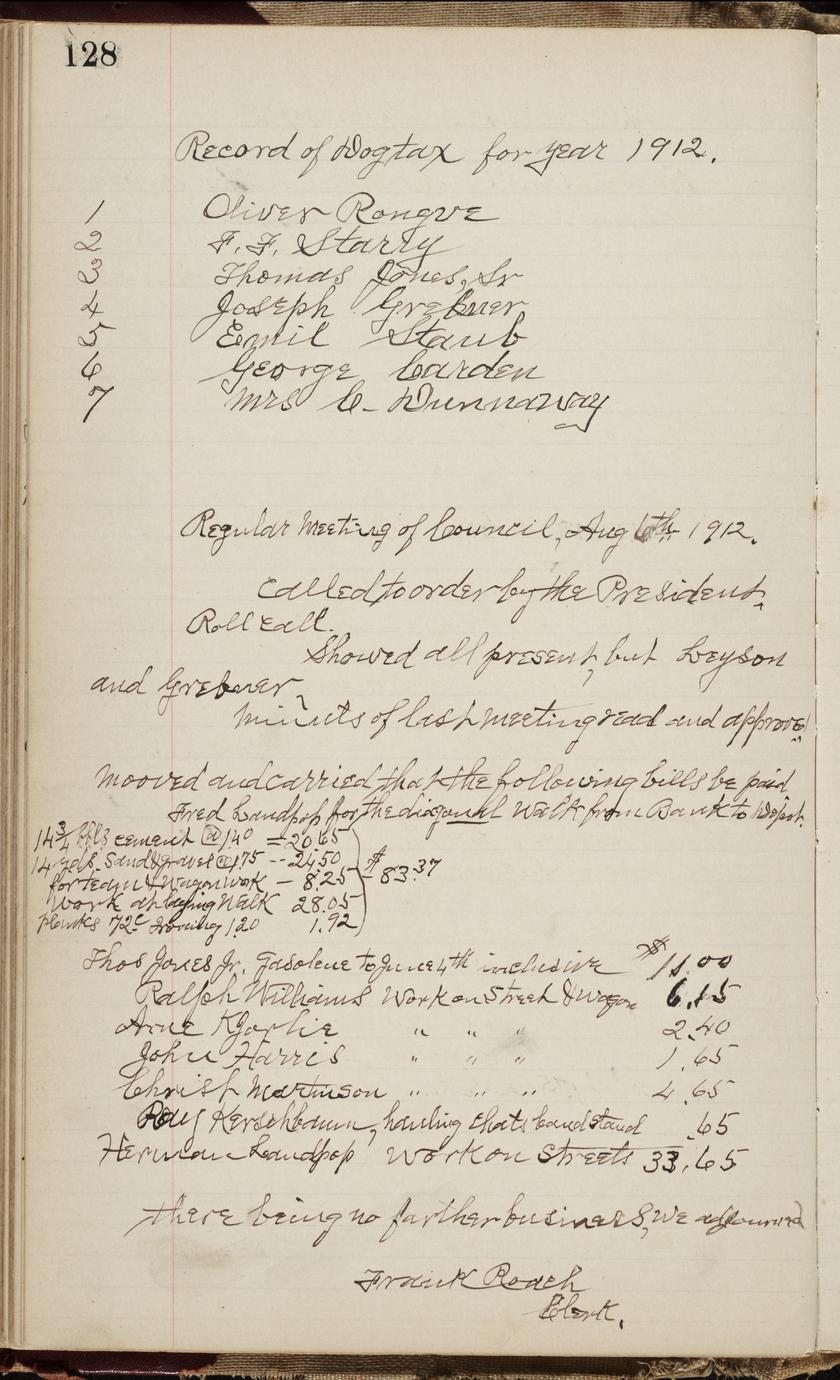 128
Record of Dogtax for year 1912.
1 Oliver Rongve
2 F. F. Starry
3 Thomas Jones, Sr
4 Joseph Grebner
5 Emil Staub
6 George Carden
7 Mrs C- Dunnaway
Regular Meeting of Council, Aug 6th 1912.
Called to order by the President.
Roll Call.
Showed all present, but Leyson
and Grebner.
Minuts of last meeting read and approved
Mooved and carried that the following bills be paid
Fred Landpop for the diagonal Walk from Bank to Depot.
14 3/4 bbls cement @ 1.40 = 20.65
14 yds. Sand & gravel @ 1.75 -- 24.50
for team & Wagon work - 8.25 $83.37
Work at laying Walk 28.05
planks 72c Ironing 1.20 1.92
Thos Jones Jr. Gasolene to June 4th inclusive $11.00
Ralph Williams Work on Street & Wagon 6.15
Arne Kjorlie " " " 2.40
John Harris " " " 1.65
Christ Martinson " " " 4.65
Roy Kerschbaum, hauling chats band stand .65
Herman Landpop Work on Streets 33.65
there being no farther business, we adjourned
Frank Roach
Clerk.